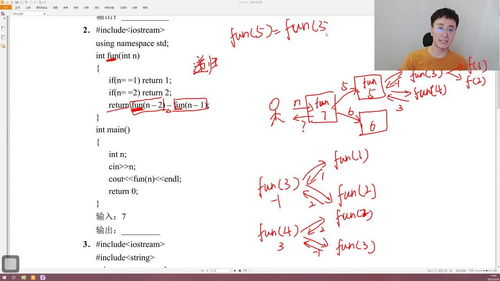 输出：
2. #include<iostream>
using namespace std;
int fun(int n)
{
if(n= =1) return 1;
if(n= =2) return 2;
return fun(n−2)−fun(n−1);
}
int main()
{
int n;
cin>>n;
cout<<fun(n)<<endl;
return 0;
}
输入：7
输出：
3. #include<iostream>
#include<string>
fun(5)=fun(3
n
?
fun
7
5
6
fun
5
6
fun(3)
f(1)
f(2)
fun(4)
-1
3
fun(3)
-1
fun(1)
1
2
fun(2)
fun(4)
3
fun(2)
2
-1
fun(3)